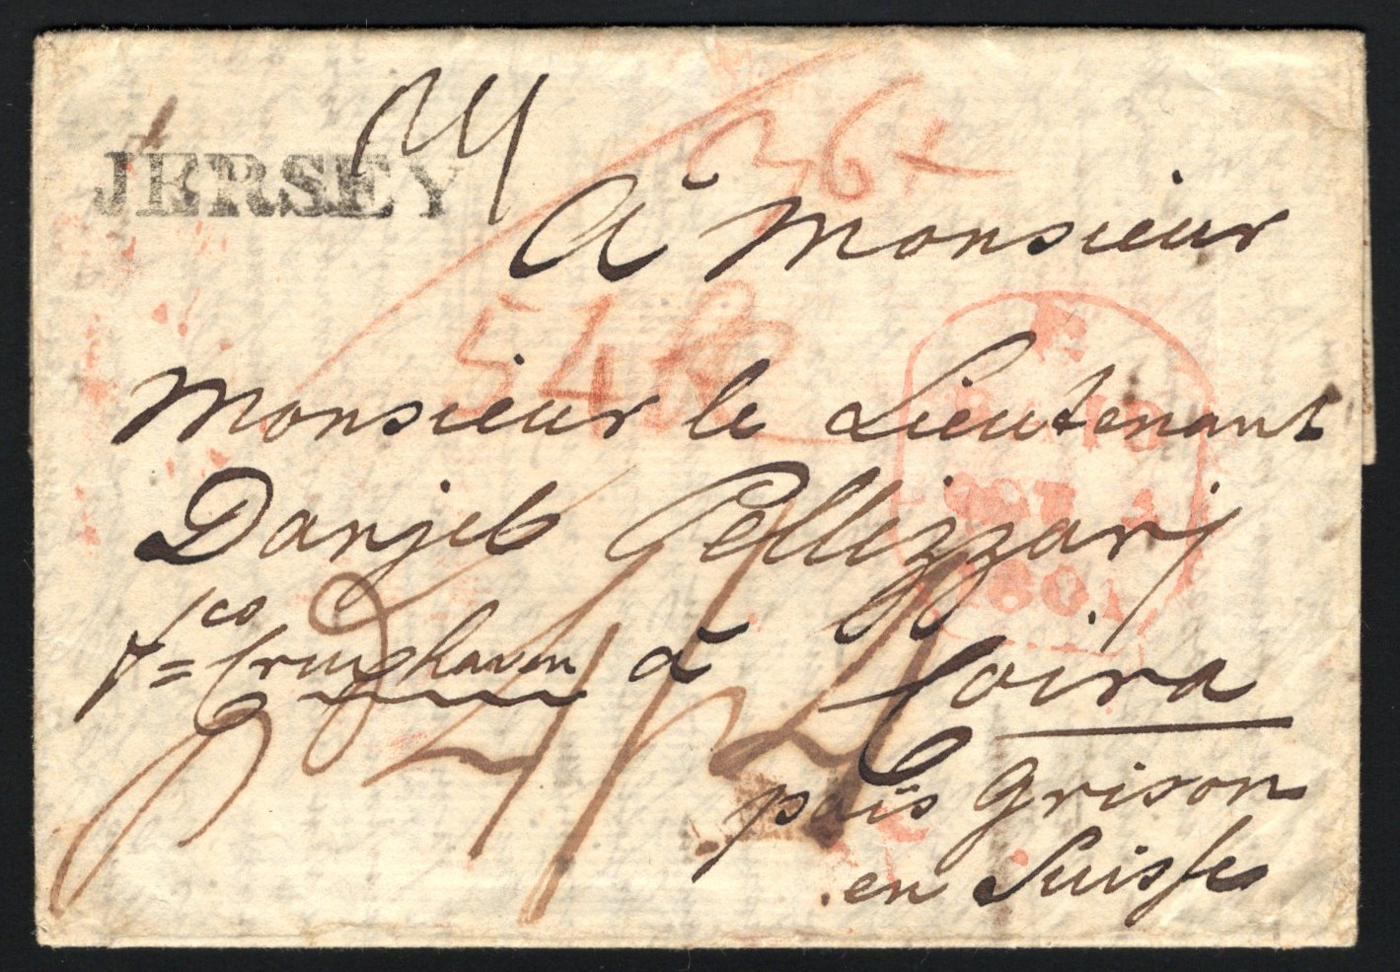 JERSEY
36x
à Monsieur
54
E
PAID
OCT
1801
Monsieur le Lieutenant
Danjel Pellizzarj
fco = Cruxhaven à Coira
païs Grison
en Suisse